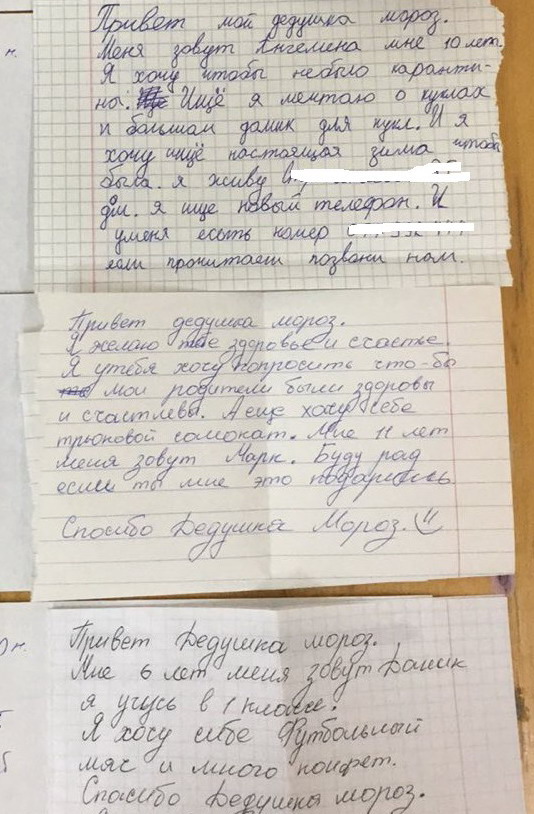 Привет мой дедушка мороз.
Меня зовут Ангелина мне 10 лет.
Я хочу чтобы небыло каранти-
на. Ищё я мечтаю о куклах
и большом домик для кукл. И я
хочу ищё настоящая зима чтобы
была. я живу
дм. я ище новый телефон. И
уменя есть номер
если прочитаеш позвони нам.
Привет дедушка мороз.
Я желаю тебе здоровье и счастье.
Я утебя хочу попросить что-бы
мои родители были здоровы
и счастлевы. А еще хочу себе
трюковой самокат. Мне 11 лет
меня зовут Марк. Буду рад
если ты мне это подаришь
Спосибо Дедушка Мороз.
Привет Дедушка мороз.
Мне 6 лет меня зовут Даник
я учусь в 1 классе.
Я хочу себе Футбольный
мяч и много конфет.
Спосибо Дедушка мороз.